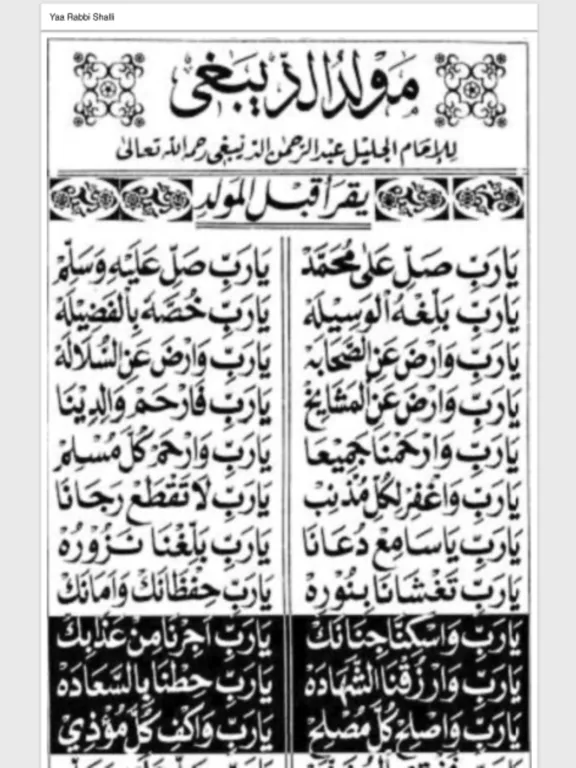 Yaa Rabbi Shalli
مَوْلِدُ الدِّيْبَغِى
لِلْإِمَامِ الْجَلِيْلِ عَبْدِ الرَّحْمٰنِ الدَّيْبَغِى رَحِمَهُ اللّٰهُ تَعَالٰى
يُقْرَأُ قَبْلَ الْمَوْلِدِ
يَارَبِّ صَلِّ عَلٰى مُحَمَّدْ يَارَبِّ صَلِّ عَلَيْهِ وَسَلِّمْ
يَارَبِّ بَلِّغْهُ الْوَسِيْلَهْ يَارَبِّ خُصَّهُ بِالْفَضِيْلَهْ
يَارَبِّ وَارْضَ عَنِ الصَّحَابَهْ يَارَبِّ وَارْضَ عَنِ السُّلَالَهْ
يَارَبِّ وَارْضَ عَنِ الْمَشَايِخْ يَارَبِّ فَارْحَمْ وَالِدِيْنَا
يَارَبِّ وَارْحَمْنَا جَمِيْعًا يَارَبِّ وَارْحَمْ كُلَّ مُسْلِمْ
يَارَبِّ وَاغْفِرْ لِكُلِّ مُذْنِبْ يَارَبِّ لَا تَقْطَعْ رَجَانَا
يَارَبِّ يَاسَامِعْ دُعَانَا يَارَبِّ بَلِّغْنَا نَزُوْرُهْ
يَارَبِّ تَغْشَانَا بِنُوْرِهْ يَارَبِّ حِفْظَانَكْ وَاَمَانَكْ
يَارَبِّ وَاسْكِنَّا جِنَانَكْ يَارَبِّ اَجِرْنَا مِنْ عَذَابِكْ
يَارَبِّ وَارْزُقْنَا الشَّهَادَهْ يَارَبِّ حِطْنَا بِالسَّعَادَهْ
يَارَبِّ وَاصْلِحْ كُلَّ مُصْلِحْ يَارَبِّ وَاكْفِ كُلَّ مُؤْذِيْ